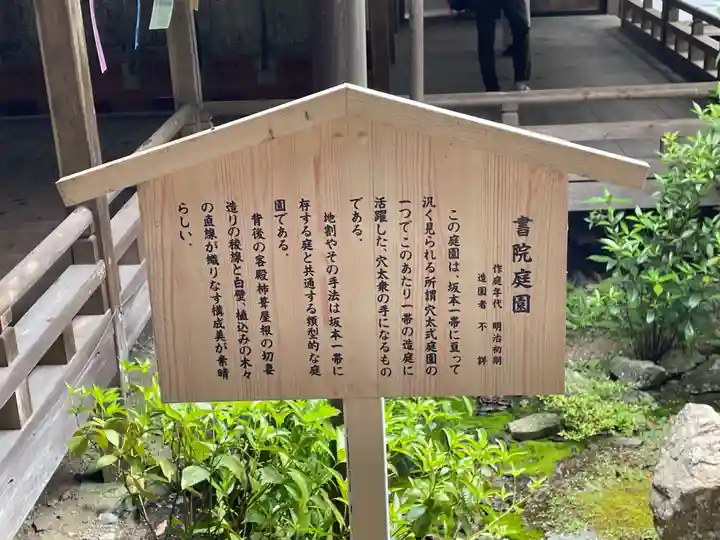 書院庭園
作庭年代 明治初期
造園者 不詳
この庭園は、坂本一帯に亘って
汎く見られる所謂穴太式庭園の
一つでこのあたり一帯の造庭に
活躍した、穴太衆の手になるもの
である。
地割やその手法は坂本一帯に
存する庭と共通する類型的な庭
園である。
背後の客殿柿葺屋根の切妻
造りの稜線と白壁、植込みの木々
の直線が織りなす構成美が素晴
らしい、